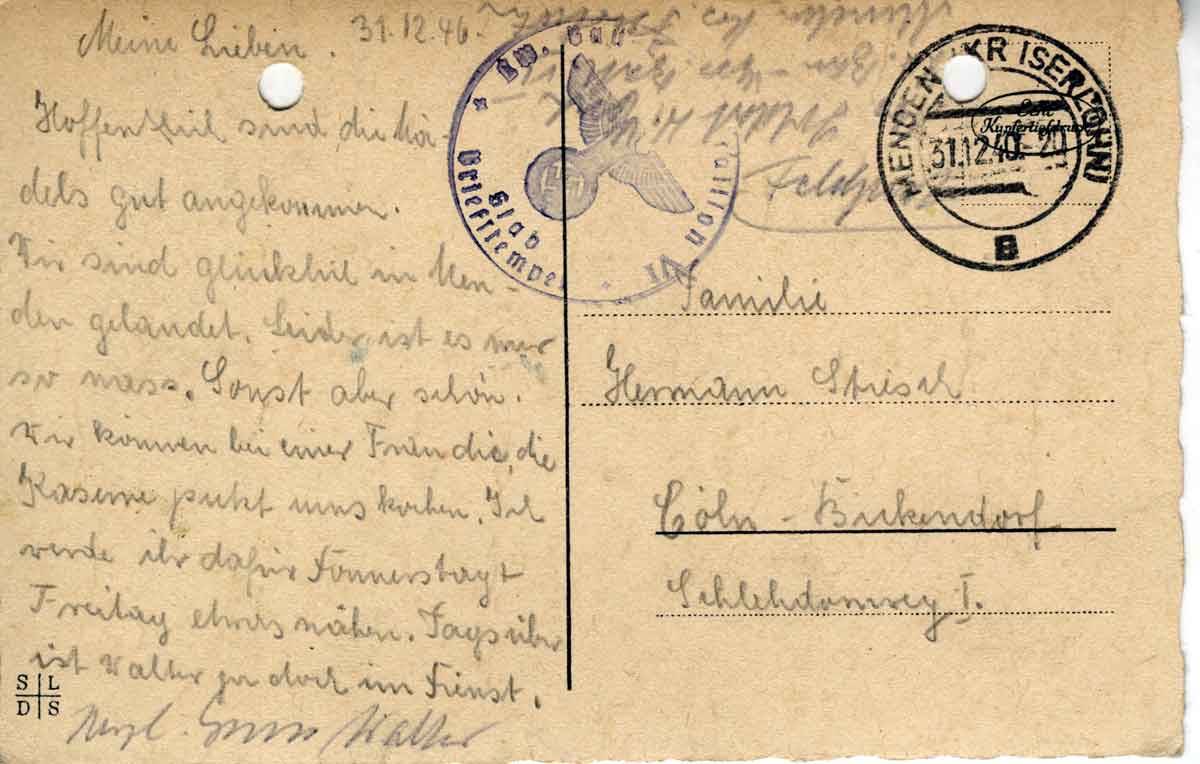 Meine Lieben. 31.12.40.
Hoffentlich sind die Mä-
dels gut angekommen.
Wir sind glücklich in Men-
den gelandet. Leider ist es nur
so nass. Sonst aber schön.
Wir können bei einer Freundin, die
Kaserne putzt uns kochen. Ich
werde ihr dafür Donnerstag +
Freitag etwas nähen. Tagsüber
ist Walter ja doch im Dienst.
Herzl. Walter
S L
D S
Lw. Bau
taillon VI
Stab
Briefstempel
Feldp
MENDEN (KR ISERLOHN)
31.12.40.-20
B
Echt
Kupfertiefdruck
Familie
Hermann
Cöln - Bickendorf
Schlehdornweg I.